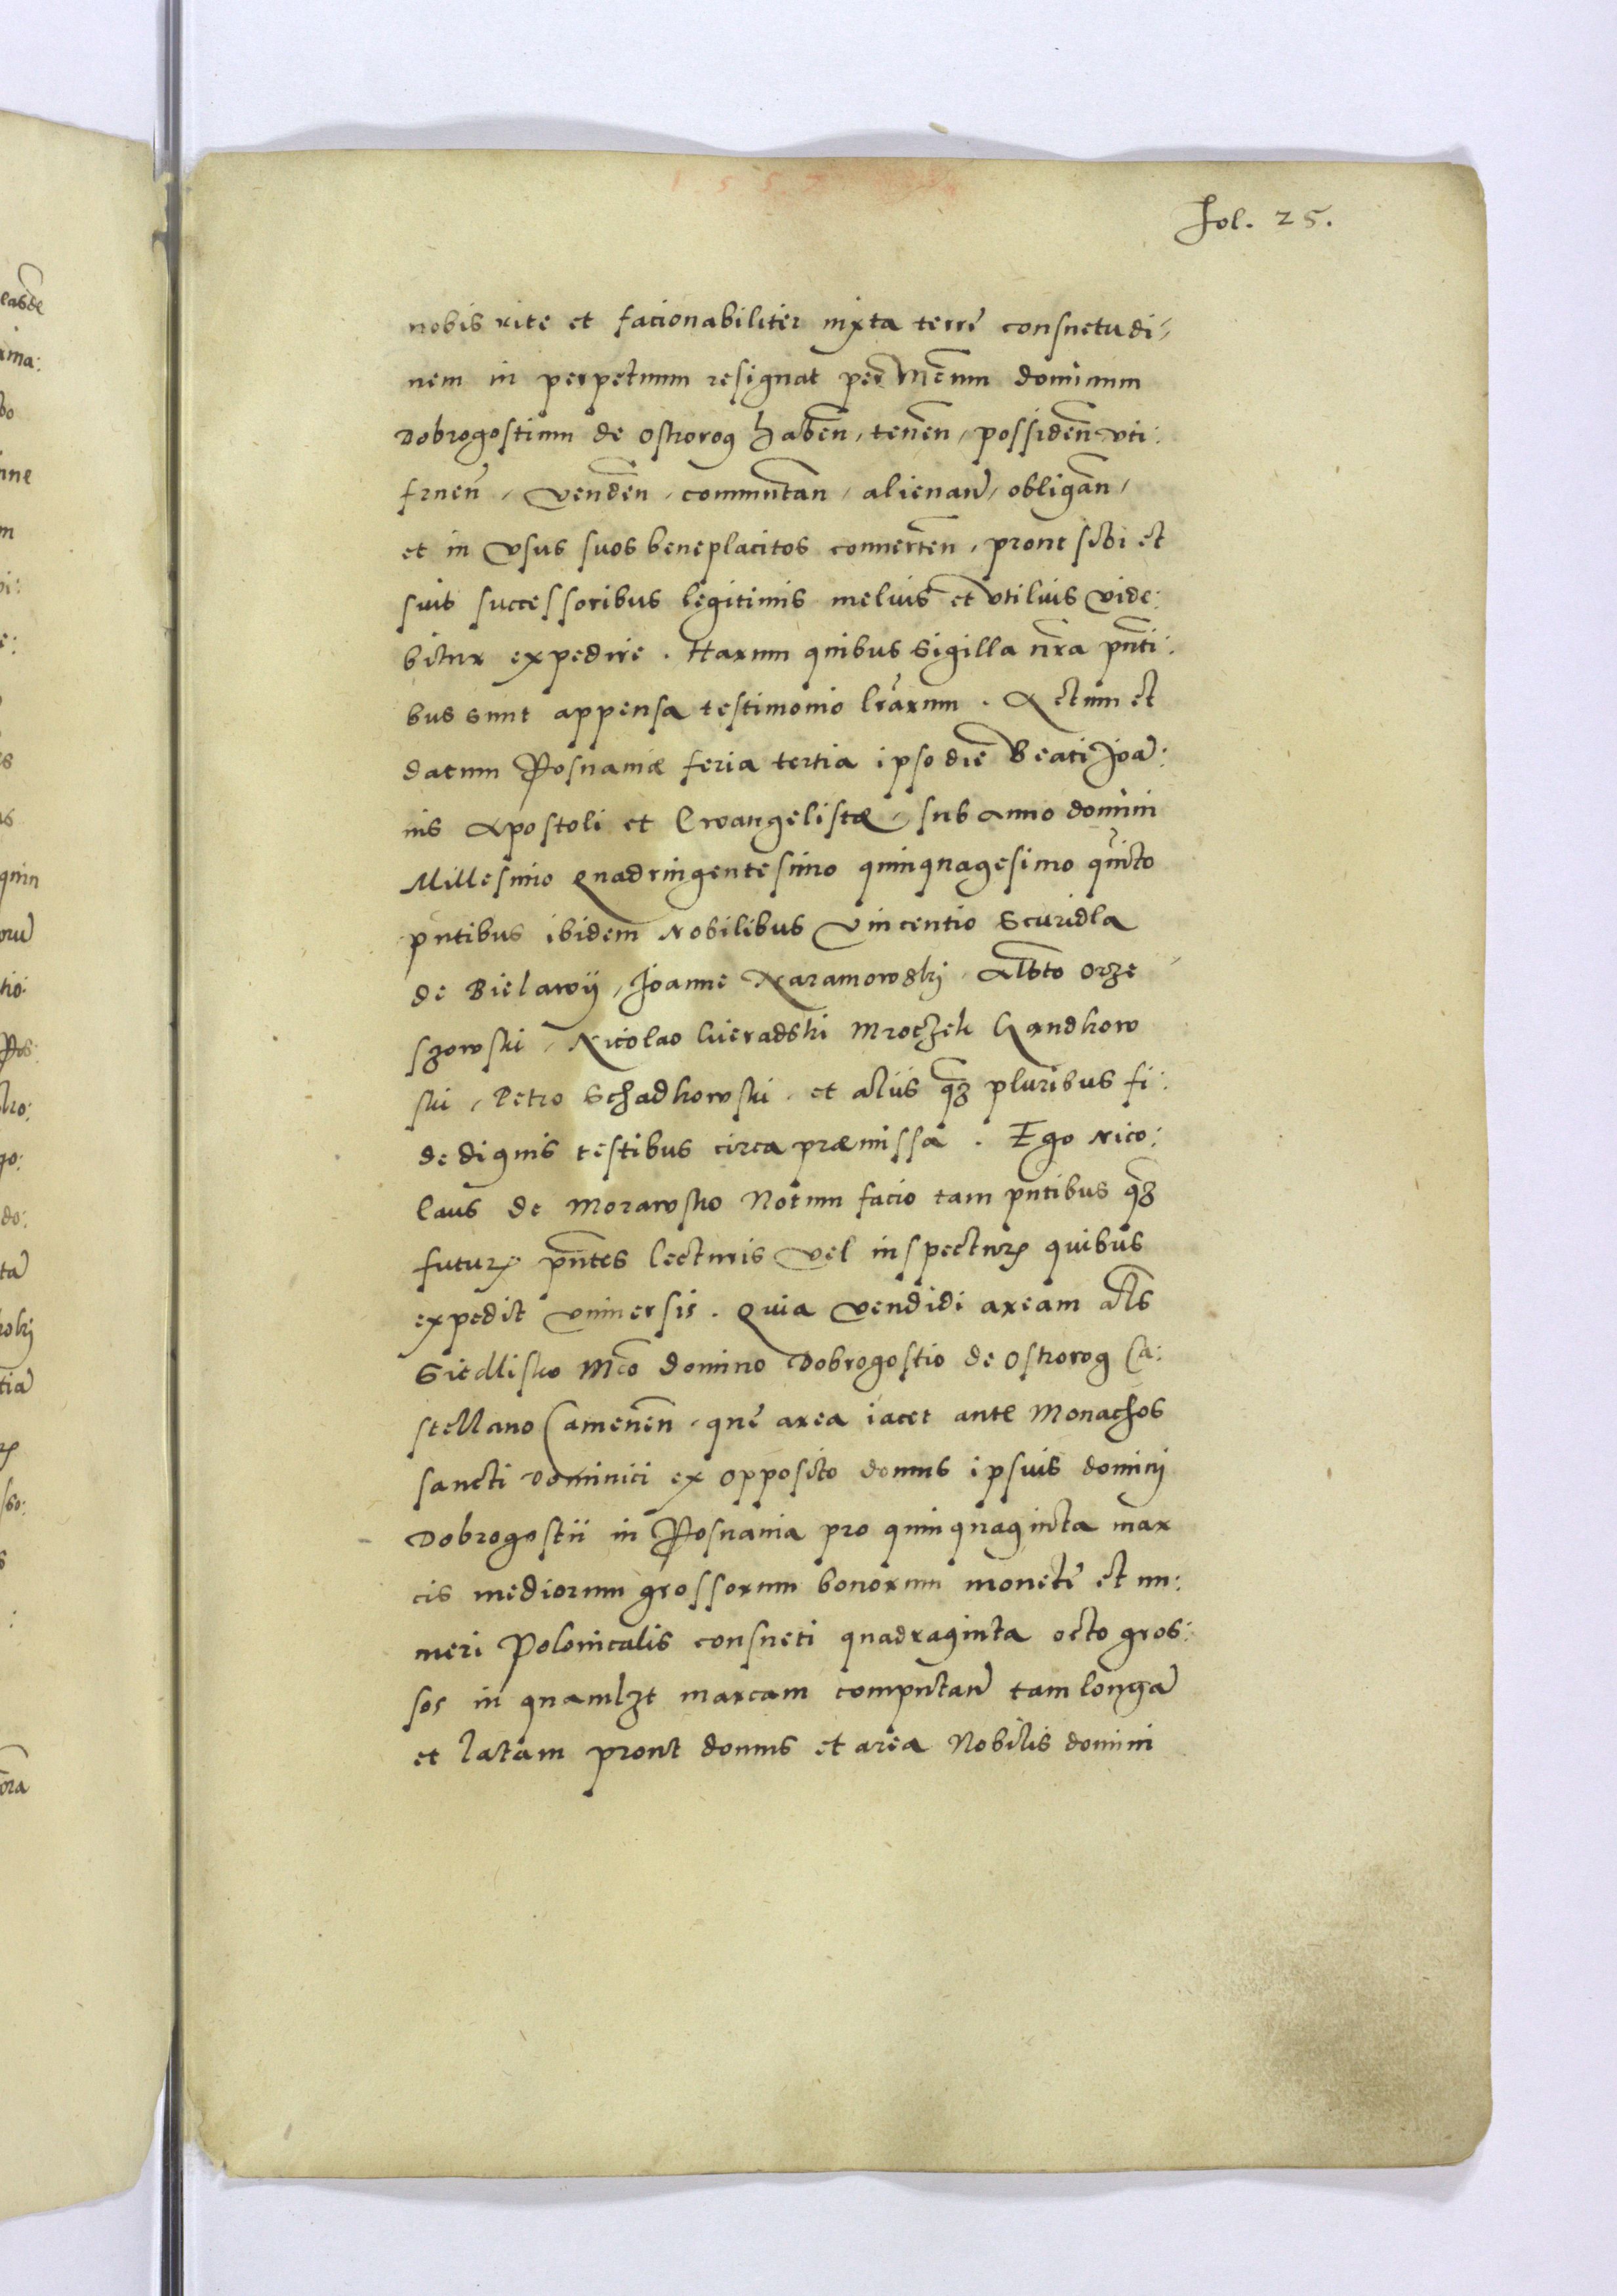 1 5 5 7
fol. 25.
nobis rite et racionabiliter iuxta terrę consuetudi-
nem in perpetuum resignat per Mcum dominum
Dobrogostium de Ostrorog haben̄, tenen̄, possiden̄ uti:
fruen̄, venden̄, commutan̄, alienan̄, obligan̄,
et in vsus suos beneplacitos conuerten̄, prout sibi et
suis successoribus legitimis melius et vtilius vide:
bitur expedire. Harum quibus sigilla nr̄a pn̄ti:
bus sunt appensa testimonio lr̄arum. Actum et
datum Posnaniæ feria tertia ipso die Beati Joā:
nis Apostoli et Ewangelistæ, sub anno domini
Millesimo quadringentesimo quinquagesimo quīto
pn̄tibus ibidem Nobilibus Vincentio Scuridla
de Bielawÿ, Joanne Naramowskj, Albto Orze
szowski, Nicolao Cieradski Mroczek Gandkow
ski, Petro Schadkowski, et alÿs q̄ȝ pluribus fi:
dedignis testibus circa præmissa. Ego Nico:
laus de Morawsko Notum facio tam pn̄tibus q̄ȝ
futurꝭ pn̄tes lecturis vel inspecturꝭ quibus
expedit vniuersis. Quia vendidi aream al̄s
Siedlisko Mco domino Dobrogostio de Ostrorog Ca:
stellano Camenen̄, quę area iacet ante Monachos
sancti Dominici ex opposito domus ipsius dominÿ
Dobrogostii in Posnania pro quinquaginta mar
cis mediorum grossorum bonorum monetę et nu:
meri Polonicalis consueti quadraginta octo gros:
sos in quamlȝt marcam computan̄ tam longā
et latam prout domus et area Nobilis domini